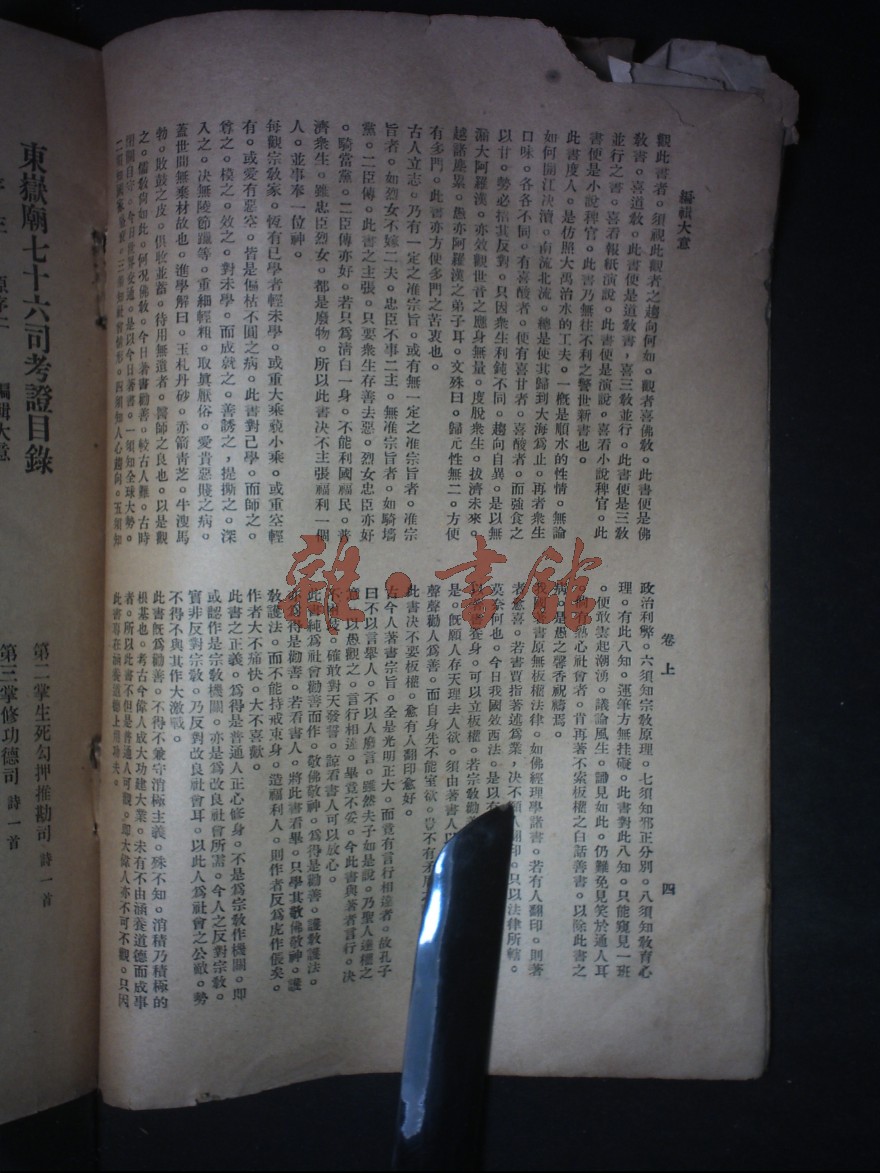 編輯大意
觀此書者。須視此觀者之趨向何如。觀者喜佛教。此書便是佛
教書。喜道教。此書便是道教書。喜三教並行。此書便是三教
並行之書。喜看報紙演說。此書便是演說。喜看小說稗官。此
書便是小說稗官。此書乃無往不利之警世新書也。
此書度人。是仿照大禹治水的工夫。一概是順水的性情。無論
如何開江決瀆。南流北流。總是使其歸到大海為止。再者衆生
口味。各各不同。有喜酸者。便有喜甘者。喜酸者。而強食之
以甘。勢必招其反對。只因衆生利鈍不同。趨向自異。是以無
漏大阿羅漢。亦效觀世音之應身無量。度脫衆生。拔濟未來。
越諸塵累。愚亦阿羅漢之弟子耳。文殊曰。歸元性無二。方便
有多門。此書亦方便多門之苦衷也。
古人立志。乃有一定之准宗旨。或有無一定之准宗旨者。准宗
旨者。如烈女不嫁二夫。忠臣不事二主。無准宗旨者。如騎墻
黨。二臣傳。此書之主張。只要衆生存善去惡。烈女忠臣亦好
。騎當黨。二臣傳亦好。若只為清白一身。不能利國福民。普
濟衆生。雖忠臣烈女。都是廢物。所以此書決不主張福利一個
人。並事奉一位神。
每觀宗教家。恆有已學者輕未學。或重大乘藐小乘。或重空輕
有。或愛有惡空。皆是偏枯不圓之病。此書對己學。而師之。
尊之。模之。效之。對未學。而成就之。善誘之。提撕之。深
入之。決無陵節躐等。重細輕粗。取眞厭俗。愛貴惡賤之病。
蓋世間無棄材故也。進學解曰。玉札丹砂。赤箭青芝。牛溲馬
勃。敗鼓之皮。俱收並蓄。待用無遺者。醫師之良也。以是觀
之。儒教尚如此。何況佛教。今日著書勸善。較古人難。古時
閉關自守。今日世界交通。是以今日著書。一須知全球大勢。
三須知社會情形。四須知人心趨向。五須知
卷上
四
政治利弊。六須知宗教原理。七須知邪正分別。八須知教育心
理。有此八知。運筆方無挂礙。此書對此八知。只能窺見一班
。便敢雲起潮湧。議論風生。謭見如此。仍難免見笑於通人耳
。倘有熱心社會者。肯再著不索板權之白話善書。以除此書之
病。是愚之馨香祝禱焉。
我國善書原無板權法律。如佛經理學諸書。若有人翻印。則著
者愈喜。若書賈指著述為業。決不願人翻印。只以法律所轄。
莫奈何也。今日我國效西法。是以
以著書養身。可以立板權。若宗教勸善
是。既願人存天理去人欲。須由著書人
聲聲勸人為善。而自身先不能窒欲。豈不有
此書決不要板權。愈有人翻印愈好。
古今人著書宗旨。全是光明正大。而竟有言行相違者。故孔子
曰不以言舉人。不以人廢言。雖然夫子如是說。乃聖人達權之
意。以愚觀之。言行相違。畢竟不妥。今此書與著者言行。決
不相違。確敢對天發誓。諒看書人可以放心。
此書純為社會勸善而作。敬佛敬神。為得是勸善。護教護法。
亦為得是勸善。若看書人。將此書看畢。只學其敬佛敬神。護
教護法。而不能持戒束身。造福利人。則作者反為虎作倀矣。
作者大不痛快。大不喜歡。
此書之正義。為得是普通人正心修身。不是為宗教作機關。即
或認作是宗教機關。亦是為改良社會所需。今人之反對宗教。
實非反對宗教。乃反對改良社會耳。以此人為社會之公敵。勢
不得不與其作大激戰。
此書既為勸善。不得不兼守消極主義。殊不知。消積乃積極的
根基也。考古今偉人成大功建大業。未有不由涵養道德而成事
者。所以此書不但是普通人可觀。即大偉人亦不可不觀。只因
此書專在涵養道德上用功夫。
東嶽廟七十六司考證目錄
編輯大意
第二掌生死勾押推勘司 詩一首
第三掌修功德司 詩一首
雜·書館